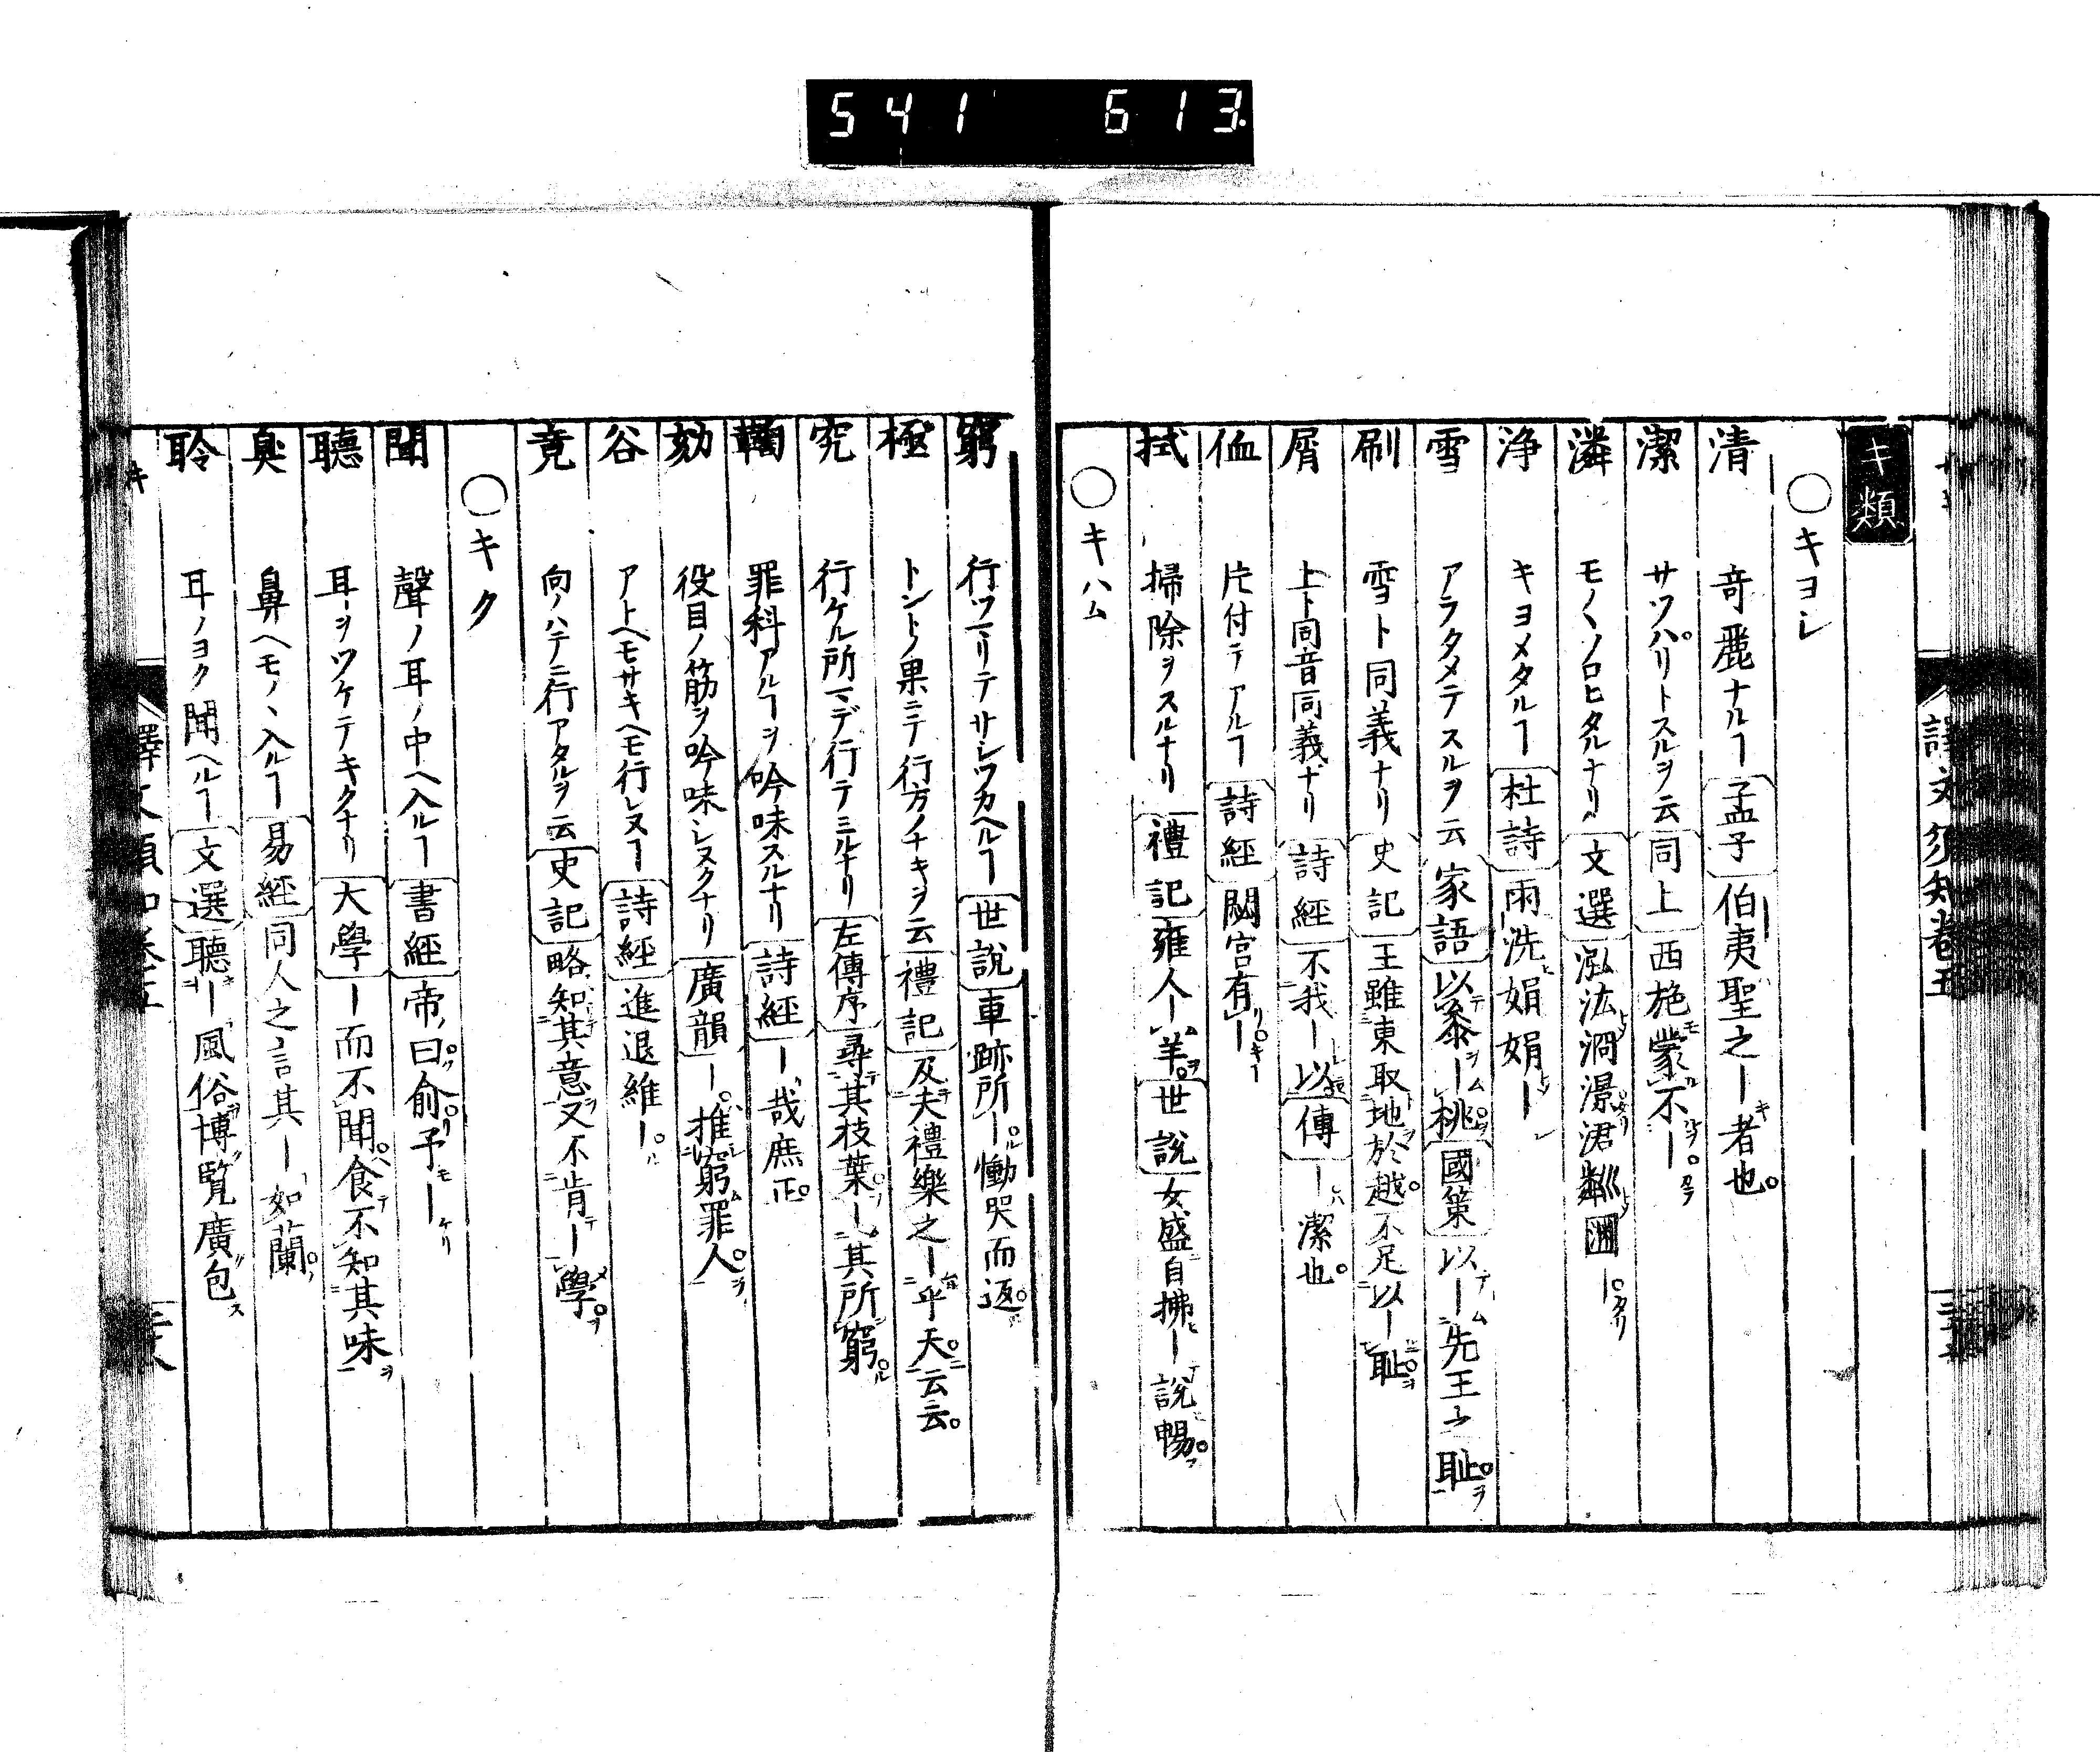 541 613
キ類
○キヨシ
清 奇麗ナルヿ 孟子 伯夷聖之ー者也
潔 サツハリトスルヲ云 同上 西施蒙不ー
潾 モノヽソロヒタルナリ 文選 泓汯澗澋涒
浄 キヨメタルヿ 杜詩 雨洗娟娟ー
雪 アラタメテスルヲ云 家語 以黍ー桃 國策 以ー先王之恥
刷 雪ト同義ナリ 史記 王雖東取地於越不足以ー恥
屑 上ト同音同義ナリ 詩經 不我ー以 傳 ー潔也
侐 片付テアルヿ 詩經 閟宮有ー
拭 掃除ヲスルナリ 禮記 雍人ー羊 世說 女盛自拂ー說暢
○キハム
窮 行ツマリテサシツカヘルヿ 世說 車跡所ー慟哭而返
極 トントノ果ニテ行方ノナキヲ云 禮記 及夫禮樂之ー乎天云云
究 行ケル所マデ行テミルナリ 左傳序 尋其枝葉ー其所窮
鞫 罪科アルヿヲ吟味スルナリ 詩經 ー哉庶正
劾 役目ノ筋ヲ吟味シヌクナリ 廣韻 ー推窮罪人
谷 アトヘモサキヘモ行レヌヿ 詩經 進退維ー
竟 向ノハテニ行アタルヲ云 史記 略知其意又不肯ー學
○キク
聞 聲ノ耳ノ中ヘ入ルヿ 書經 帝曰俞予ー
聽 耳ヲツケテキクナリ 大學 ー而不聞食不知其味
臭 鼻ヘモノヽ入ルヿ 易經 同人之言其ー如蘭
聆 耳ノヨク聞ヘルヿ 文選 聽ー風俗博覽廣包